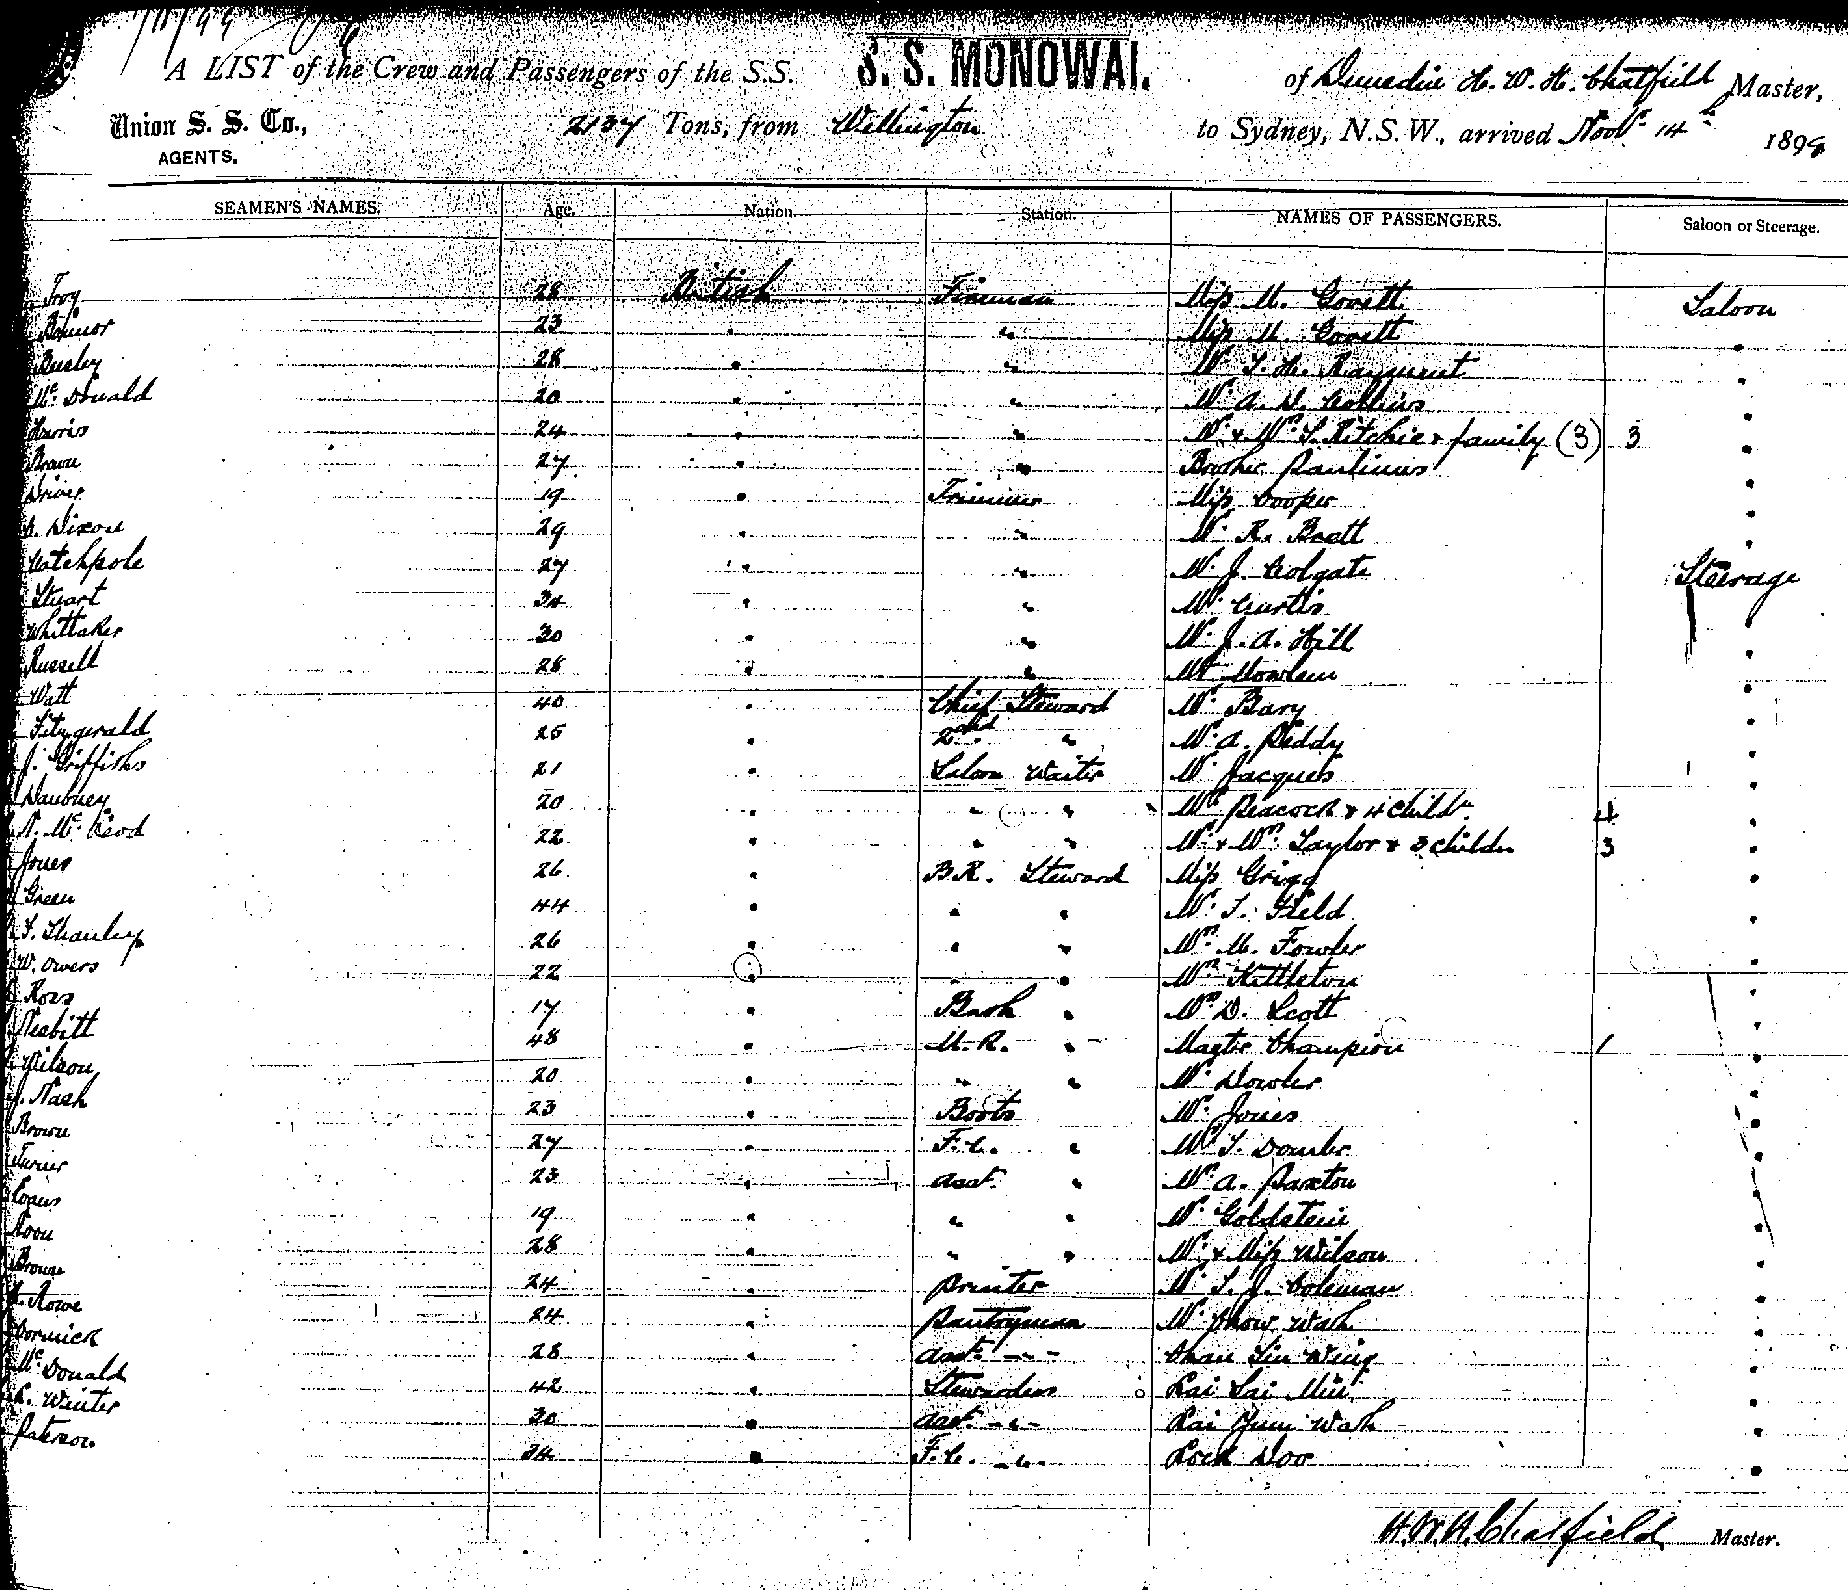 A LIST of the Crew and Passengers of the S.S. S. S. MONOWAI. of Dunedin H. W. H. Chatfield Master,
Union S. S. Co., 2137 Tons, from Wellington to Sydney, N.S.W., arrived Nov 14th 1898
AGENTS.
SEAMEN'S NAMES. Age. Nation. Station. NAMES OF PASSENGERS. Saloon or Steerage.
Troy 28 British Fireman Miss M. Govett Saloon
23 " " Miss M. Govett "
Busby 28 " " Mr T. H. Rayment "
McDonald 20 " " Mr A. D. Collins "
Harris 24 " " Mr & Mrs T. Ritchie & family (3) 3 "
Brown 27 " " Brother Paulinus "
Driver 19 " Trimmer Miss Cooper "
Dixon 29 " " Mr R. Bratt "
Catchpole 27 " " Mr J. Colgate Steerage
Stuart 34 " " Mr Curtis "
Whittaker 30 " " Mr J. A. Hill "
Russell 28 " " Mr Mowlem "
Watt 40 " Chief Steward Mr Bary "
Fitzgerald 25 " 2nd " Mr A. Peddy "
J. Griffiths 21 " Saloon Waiter Mr Jacques "
Daubney 20 " " " Mrs Peacock & 4 childn 4 "
N. McLeod 22 " " " Mr & Mrs Taylor & 3 childn 3 "
Jones 26 " B.R. Steward Miss Grigg "
Green 44 " " " Mr T. Field "
26 " " " Mrs M. Fowler "
W. Owers 22 " " " Mrs Kettleton "
Ross 17 " Bath " Mrs D. Scott "
Nesbitt 48 " M.R. " Master Champion 1 "
Wilson 20 " " " Mr Dowler "
J. Nash 23 " Boots Mr Jones "
Brown 27 " F.C. " Mr T. "
Turner 23 " Asst. " Mrs A. Paxton "
19 " " " Mr Goldstein "
28 " " " Mr & Miss Wilson "
Browne 24 " Printer Mr T. J. Coleman "
Rowe 24 " Pantryman Mr Chow Wah "
Cormick 28 " Asst. " Chan Sin Wing "
McDonald 42 " Stewardess Lai Lai Min "
Winter 30 " Asst. " Lai Yum Wah "
Paterson 34 " F.C. " Lock Doo "
H. W. H. Chatfield Master.